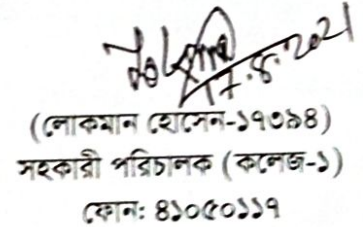 17.8.2021
(লোকমান হোসেন-১৭৩৯৪)
সহকারী পরিচালক (কলেজ-১)
ফোন: ৪১০৫০১১৭